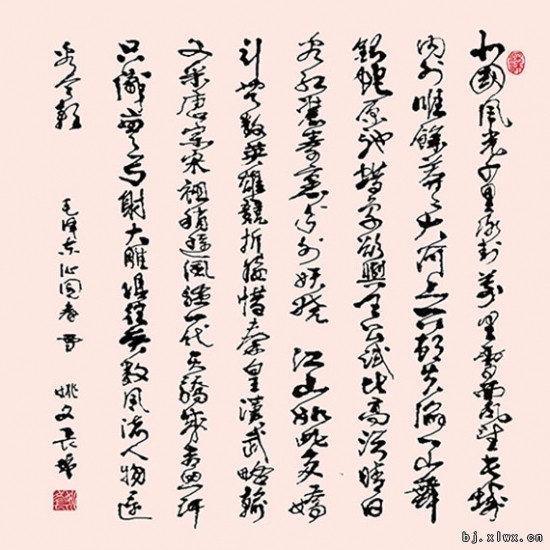 北國風光千里冰封萬里雪飄望長城
内外唯餘莽々大河上下頓失滔々山舞
銀蛇原馳蠟象欲與天公試比高須晴日
看紅裝素裹分外妖嬈 江山如此多嬌
引無數英雄競折腰惜秦皇漢武略輸
文采唐宗宋祖稍遜風騷一代天驕成吉思汗
只識彎弓射大雕俱往矣數風流人物還
看今朝 毛泽东沁园春雪 姚文
bj.xlwx.cn